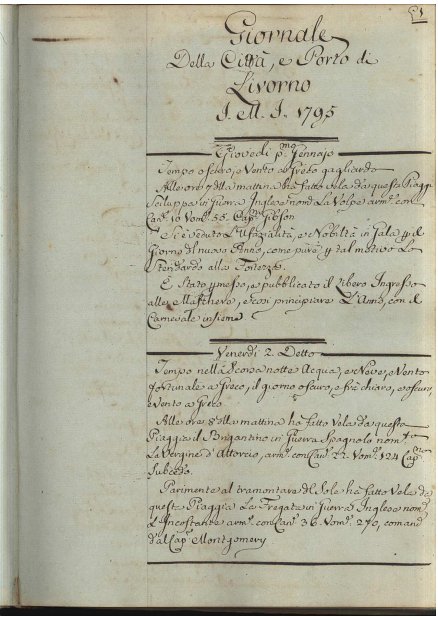 51
Giornale
Della Città, e Porto di
Livorno
I. M. I. 1795
Giovedi p.mo Gennajo
Tempo oscuro, e Vento a Greco gagliardo
Alle ore 7 della mattina ha fatto Vela da questa Piagg.
Sciluppa in Guerra Inglese nom.ta La Volpe arm.ta con
Can.i 10 Vom.i 55. Cap.no Gibson
Si è veduto L'Ufizialità, e Nobiltà in Gala p il
Giorno del nuovo Anno, come pure p tal motivo Lo
Stendardo alla Fortezza.
È Stato pmesso, e pubblicato il libero Ingresso
alle Maschere, e così principiare L'Anno, con il
Carnevale insieme
Venerdi 2. Detto
Tempo nella Scorsa notte Acqua, e Neve, e Vento
fortunale a Greco, il giorno oscuro, e frà chiaro, e oscuro
e vento a Greco
Alle ore 8 della mattina ha fatto Vela da questa
Piaggia il Brigantino in Guerra Spagnolo nom.to
La Vergine d'Attorcio, arm.o con Can.i 22. Vom.i 124 Cap.no
Parimente al tramontare del Sole ha fatto Vela da
questa Piaggia La Fregata in Guerra Inglese nom.
L'Incostante arm.a con Can.i 36. Vom.i 270, comand
dal Cap.o Montgomery